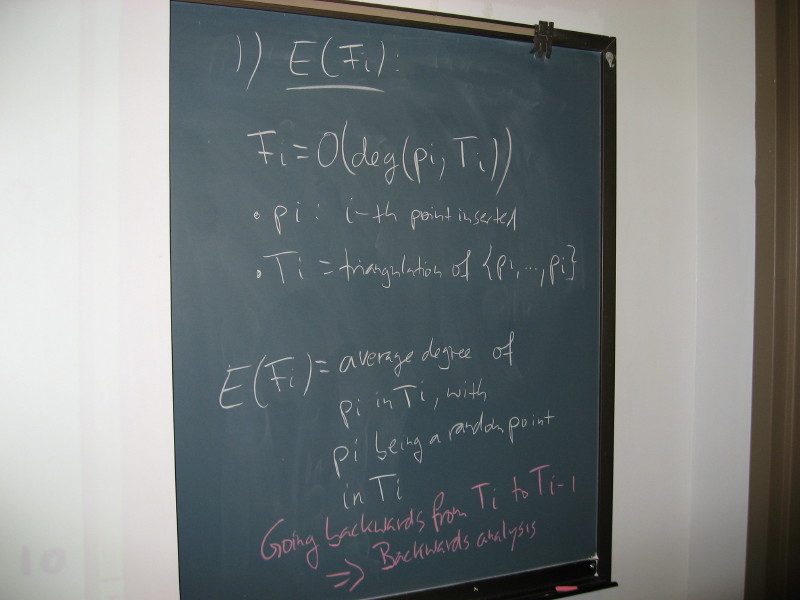 1) E(Fi):
Fi = O(deg(pi, Ti))
• pi : i-th point inserted
• Ti = triangulation of {pi, ..., pi}
E(Fi) = average degree of
pi in Ti, with
pi being a random point
in Ti
Going backwards from Ti to Ti-1
⇒ Backwards analysis
10